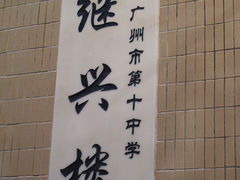 继兴楼
广州市第十中学